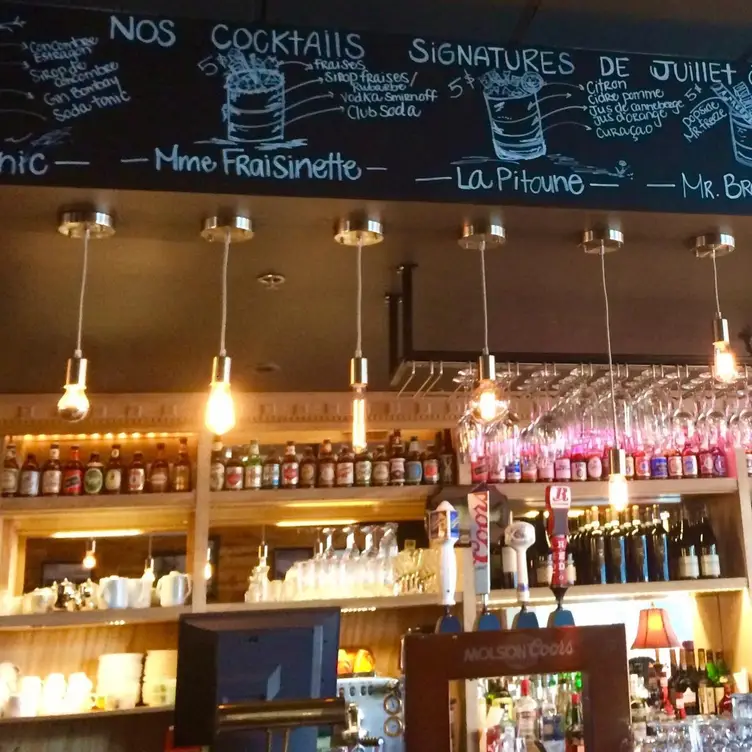 NOS COCKTAILS SIGNATURES DE JUILLET
Concombre
Estragon
Sirop de
concombre
Gin Bombay
Soda-tonic
NIC
5$
FRAISES
SIROP FRAISES/
Rhubarbe
Vodka Smirnoff
Club Soda
Mme Fraisinette
5$
Citron
Cidre pomme
Jus de canneberge
Jus d'orange
Curaçao
La Pitoune
5$
Popsicle
Mr. Freeze
Mr. Br
Coors
MOLSON Coors